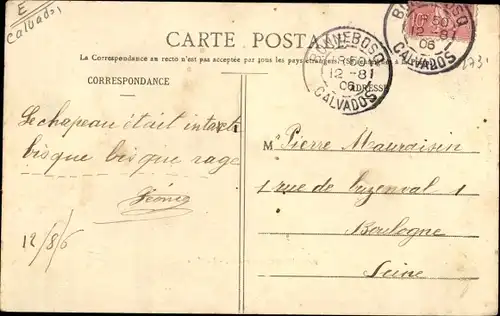 E
Calvados
CARTE POSTALE
La Correspondance au recto n'est pas acceptée par tous les pays étrangers
CORRESPONDANCE
ADRESSE
BONNEBOSQ
8 50
12 -8
06
CALVADOS
BONNEBOSQ
8 50
12 -8
06
CALVADOS
10c
Le chapeau était intact
bisque bisque rage
Léonie
12/8/6
M Pierre Mauraisin
1 rue de Buzenval 1
Boulogne
Seine